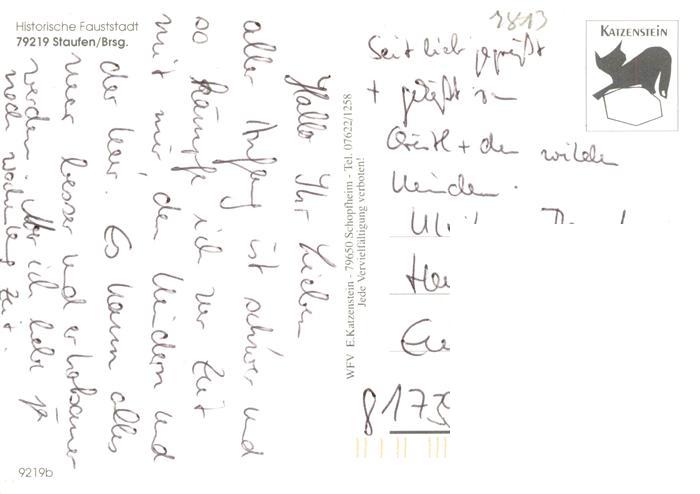 Historische Fauststadt
79219 Staufen/Brsg.
Hallo Ihr Lieben
aller Anfang ist schwer und
so kämpfe ich zur Zeit
mit mir den Kindern und
der Leir. Es kann alles
nur besser und erholsamer
werden. Aber ich habe ja
noch wochenlang Zeit.
9219b
WFV E.Katzenstein - 79650 Schopfheim - Tel. 07622/1258
Jede Vervielfältigung verboten!
3813
KATZENSTEIN
Seit lieb gegrüßt
+ geküßt von
+ den wilden
Kindern.
8175